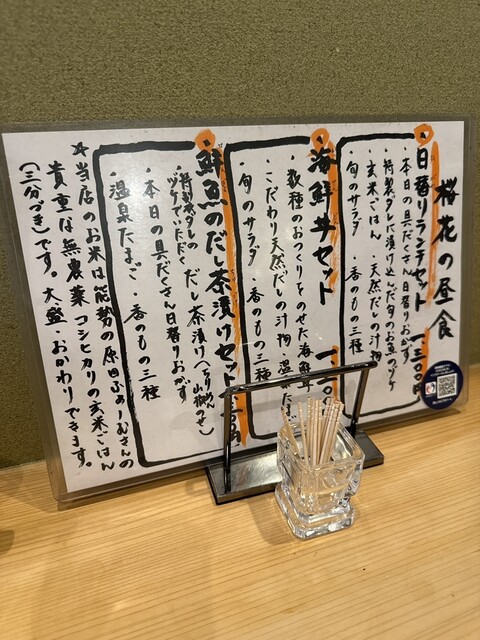 桜花の昼食
日替りランチセット 一三〇〇円
・本日の具だくさん日替りおかず
・特製ダレに漬け込んだ旬のお魚のヅケ
・玄米ごはん ・天然だしの汁物
・旬のサラダ ・香のもの三種
海鮮丼セット
・数種のおつくりをのせた海鮮丼
・こだわり天然だしの汁物 ・温泉たまご
・旬のサラダ ・香のもの三種
鮮魚のだし茶漬けセット
・特製ダレの
ヅケでいただく だし茶漬け
・本日の具だくさん日替りおかず
・温泉たまご ・香のもの三種
☆当店のお米は能勢の原田ふぁーむさんの
貴重な無農薬コシヒカリの玄米ごはん
(三分づき)です。大盛・おかわりできます。